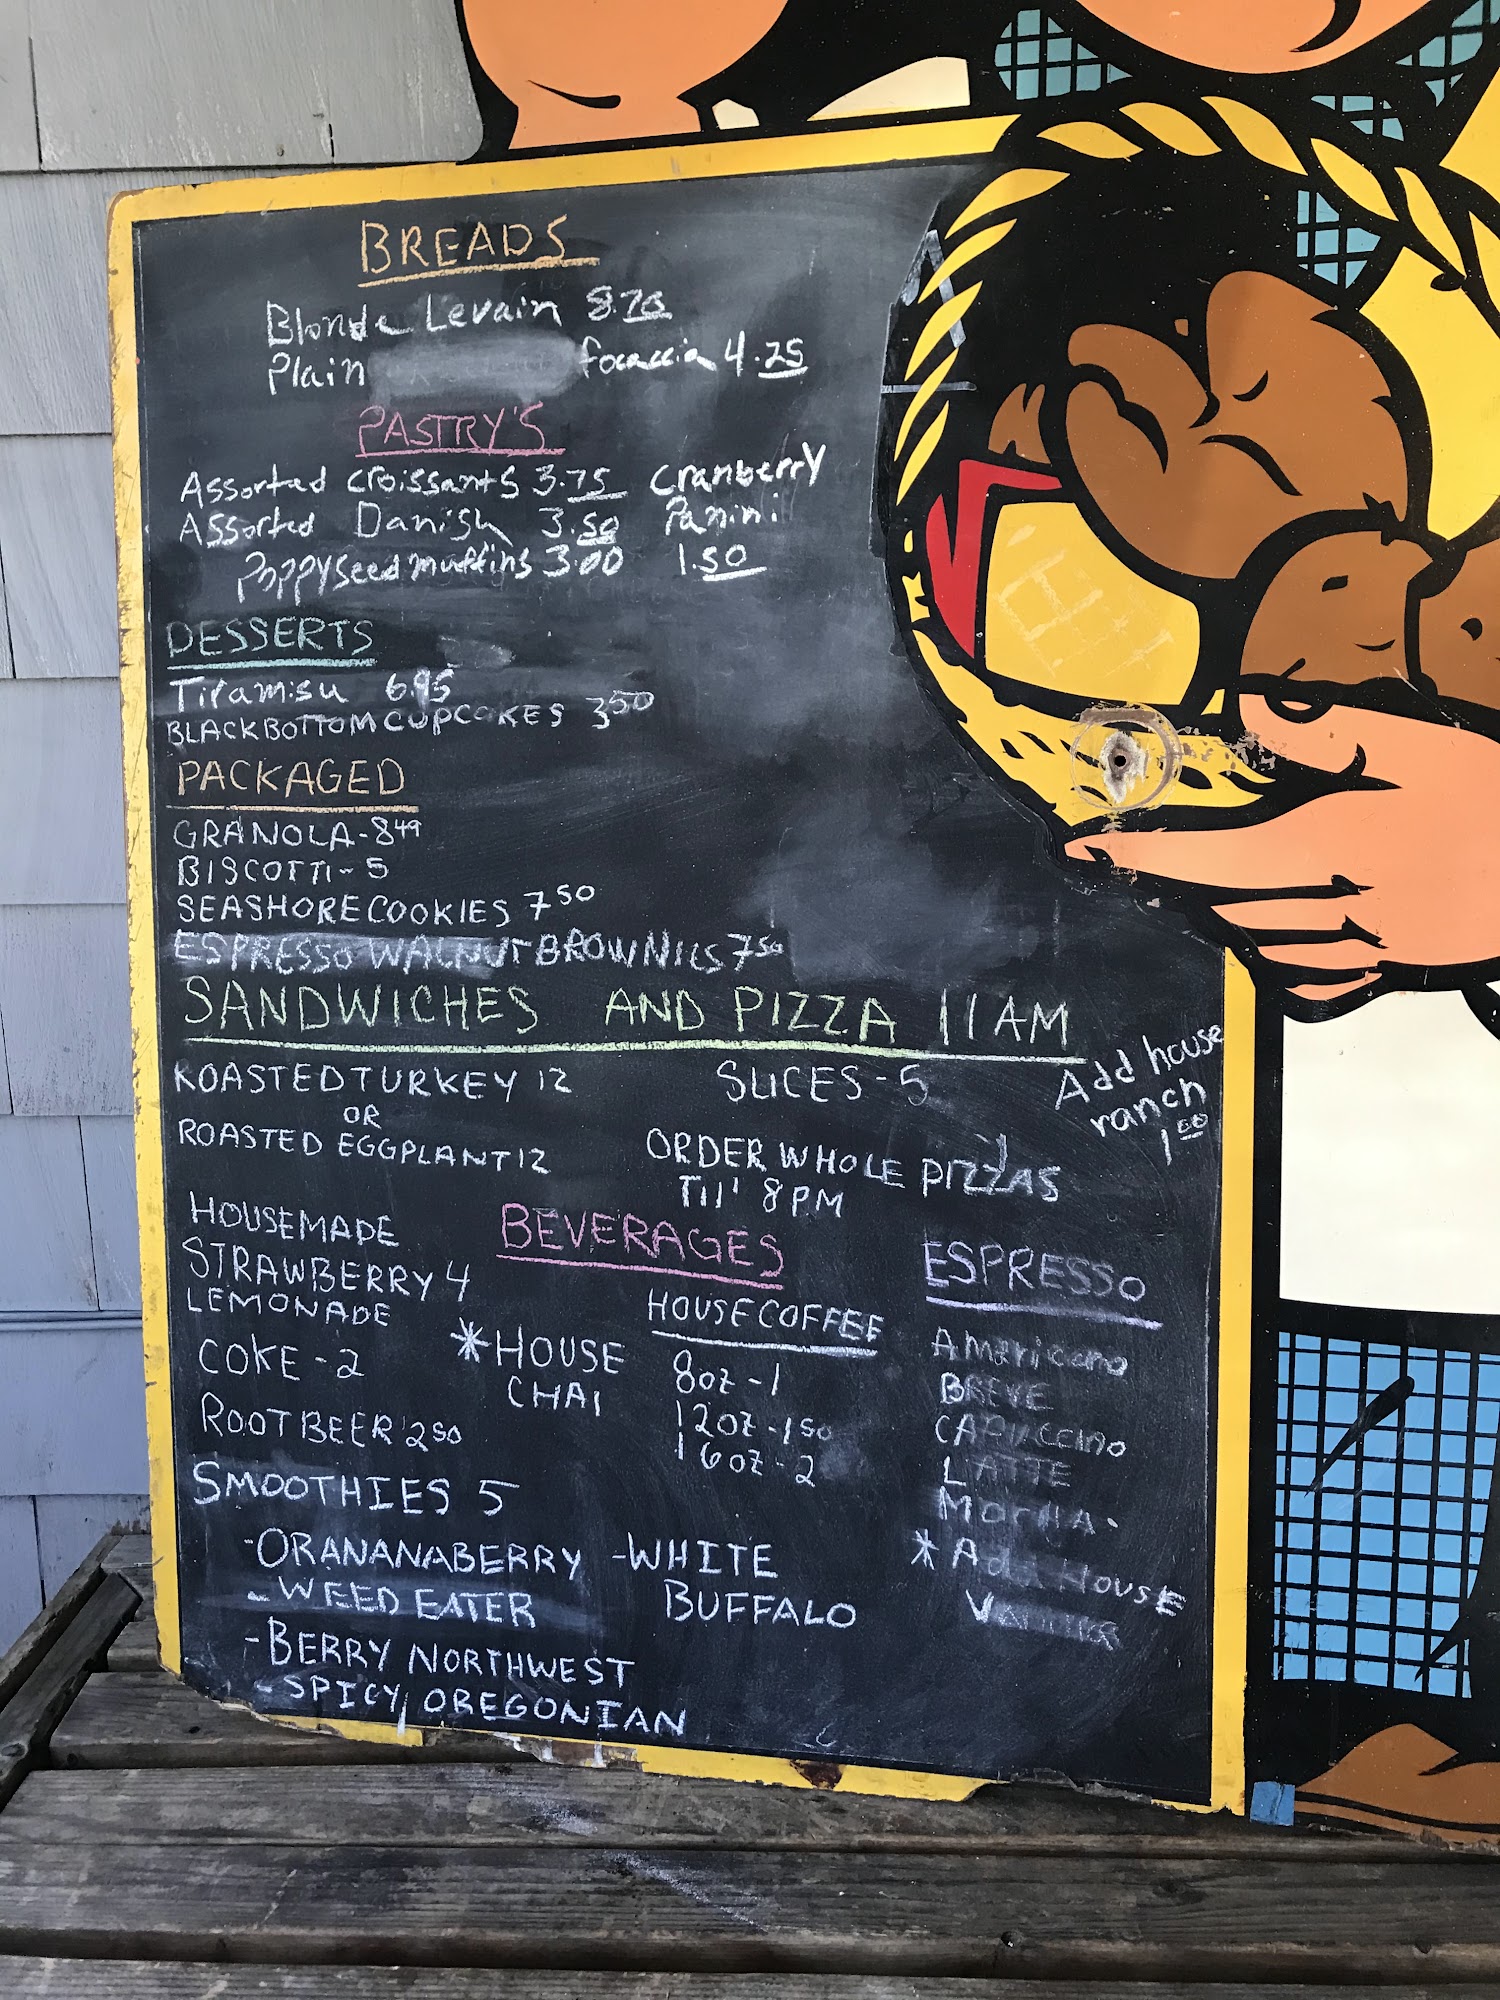 BREADS
Blonde Levain 8.70
Plain focaccia 4.25
PASTRY'S
Assorted croissants 3.75
Assorted Danish 3.50
Poppyseed muffins 3.00
Cranberry
Panini
1.50
DESSERTS
Tiramisu 6.95
BLACK BOTTOM CUPCAKES 3 50
PACKAGED
GRANOLA - 8 49
BISCOTTI - 5
SEASHORE COOKIES 7 50
ESPRESSO WALNUT BROWNIES 7 50
SANDWICHES AND PIZZA 11 AM
ROASTED TURKEY 12
OR
ROASTED EGGPLANT 12
SLICES - 5
Add house
ranch
1 00
ORDER WHOLE PIZZAS
TIl' 8 PM
BEVERAGES
HOUSEMADE
STRAWBERRY 4
LEMONADE
COKE - 2
ROOTBEER 2 50
* HOUSE
CHAI
HOUSE COFFEE
8oz - 1
12oz - 1 50
16oz - 2
ESPRESSO
Americano
BREVE
CAPUCCINO
LATTE
MOCHA
* Add HOUSE
SMOOTHIES 5
- ORANANABERRY
- WEED EATER
- BERRY NORTHWEST
- SPICY OREGONIAN
- WHITE
BUFFALO